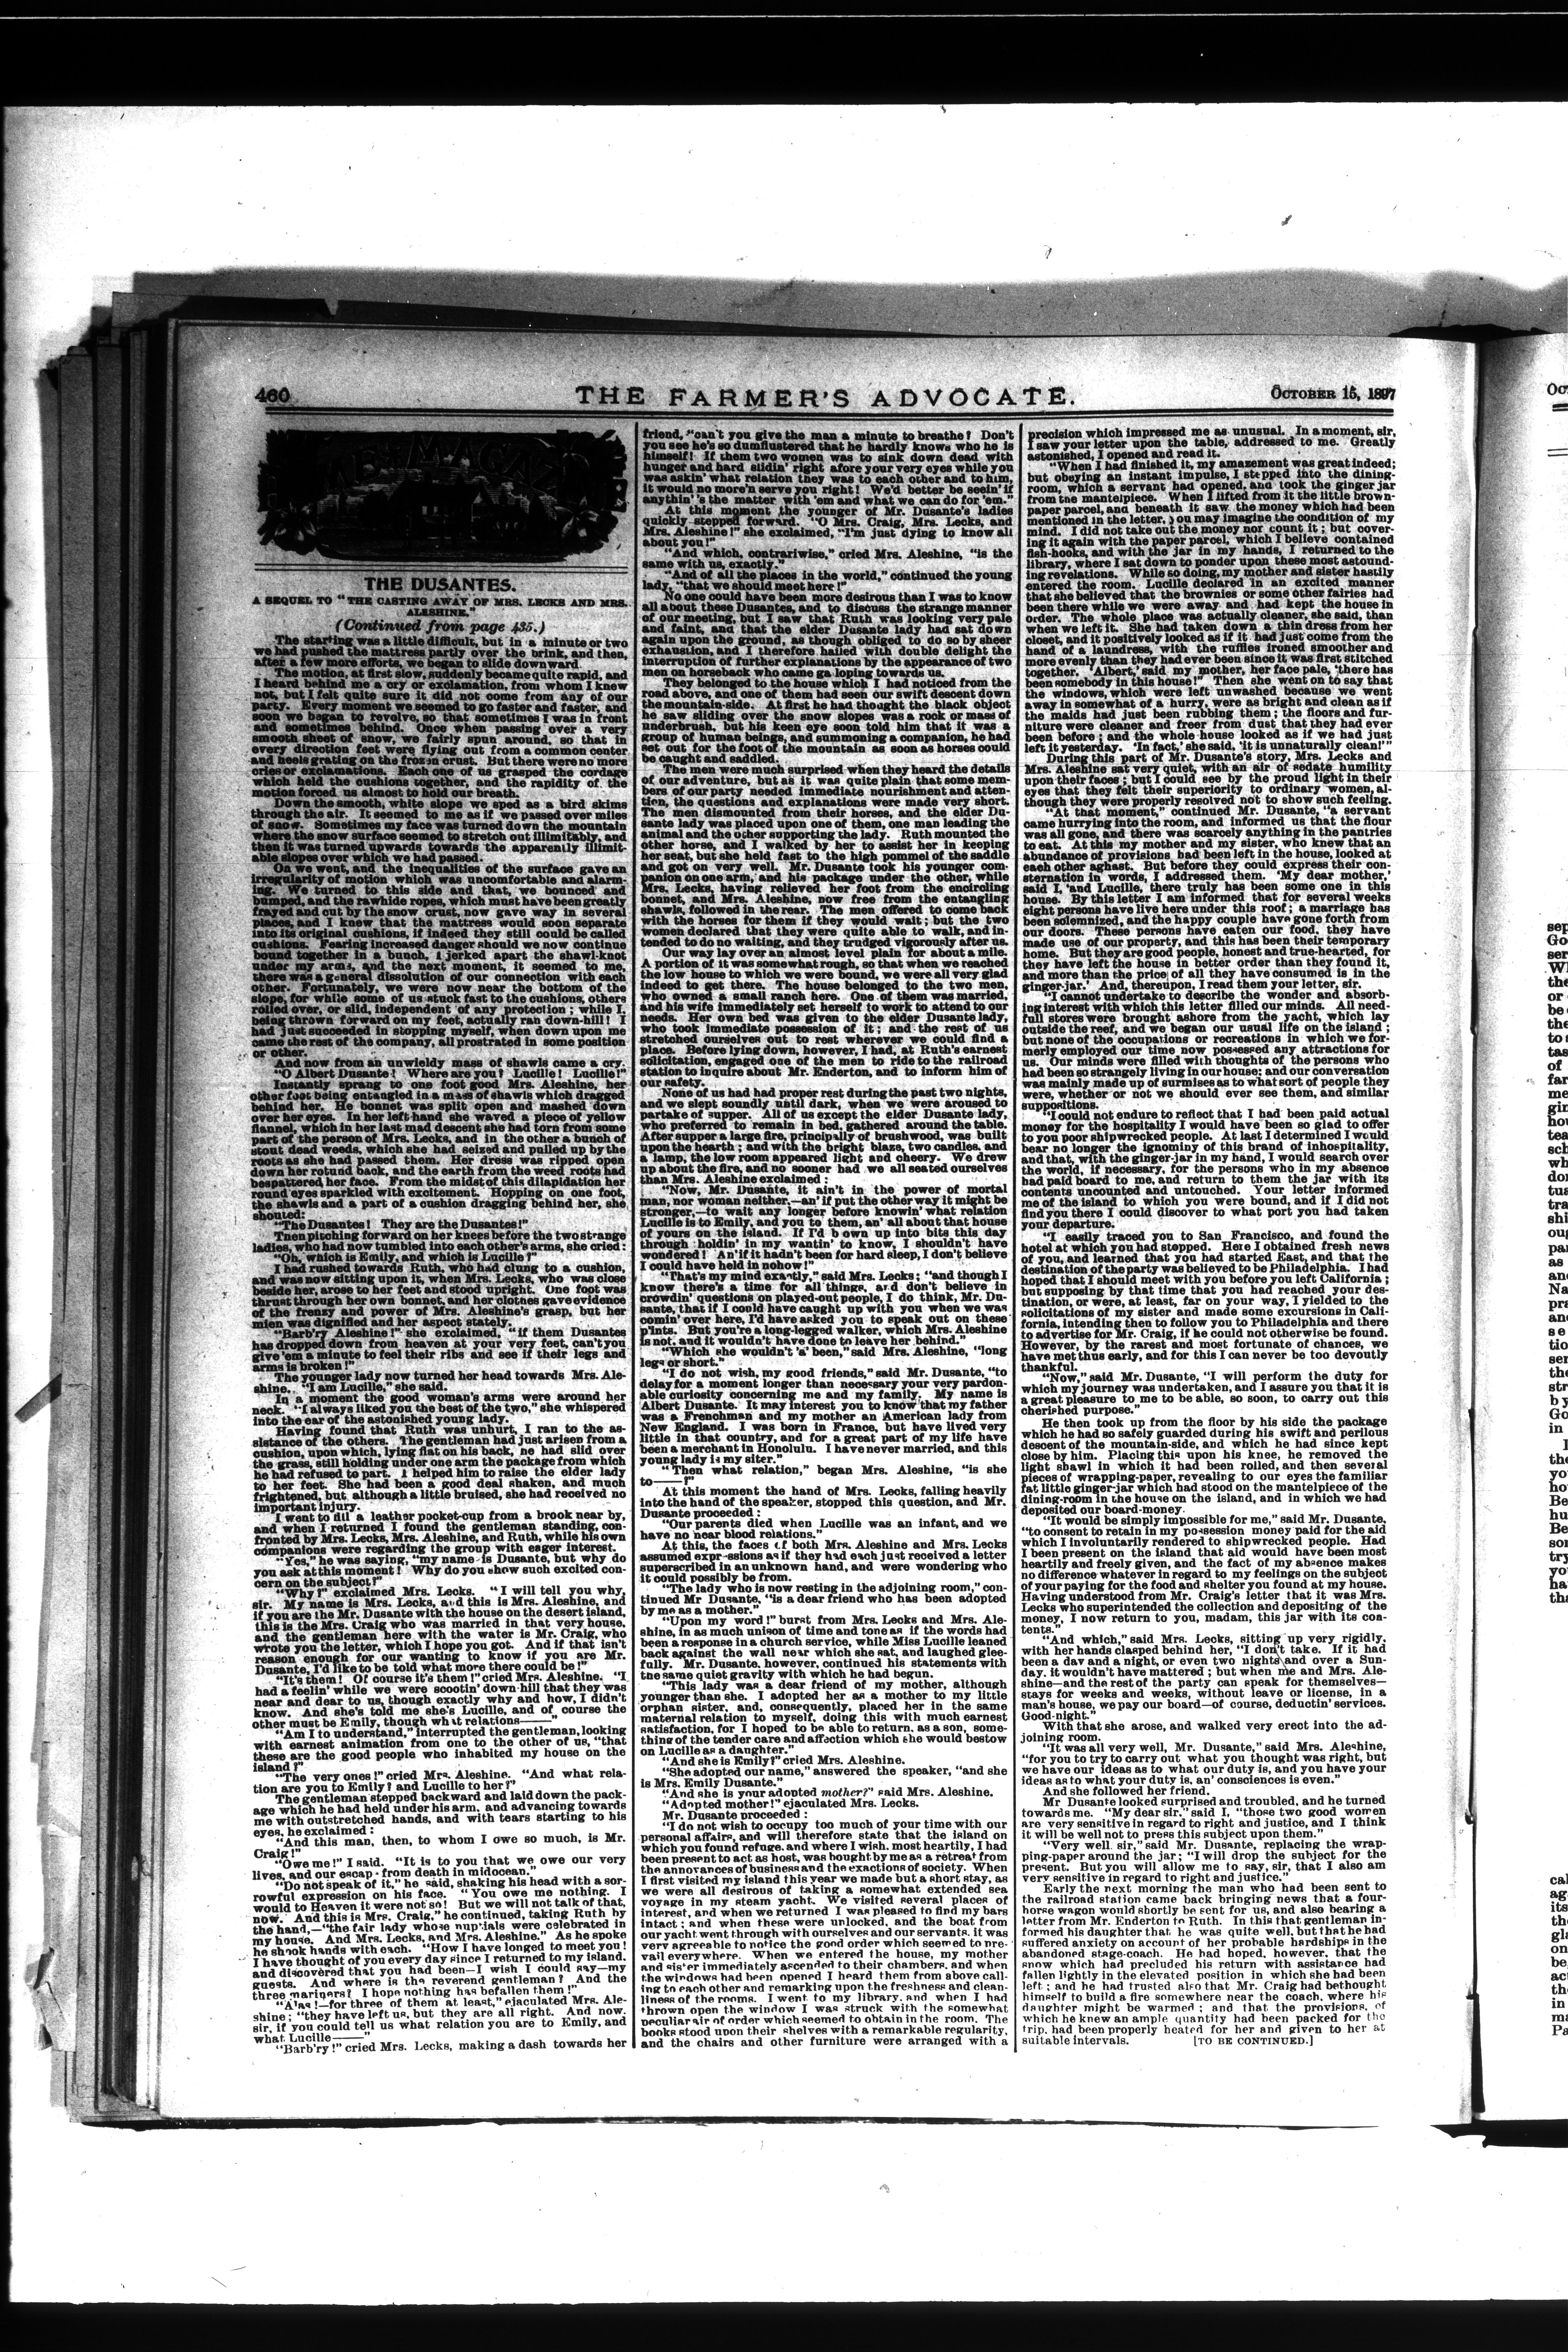 460
THE FARMER'S ADVOCATE.
OCTOBER 15, 1897
THE DUSANTES.
A SEQUEL TO "THE CASTING AWAY OF MRS. LECKS AND MRS.
ALESHINE."
(Continued from page 435.)
The starting was a little difficult, but in a minute or two
we had pushed the mattress partly over the brink, and then,
after a few more efforts, we began to slide downward.
The motion, at first slow, suddenly became quite rapid, and
I heard behind me a cry or exclamation, from whom I knew
not, but I felt quite sure it did not come from any of our
party. Every moment we seemed to go faster and faster, and
soon we began to revolve, so that sometimes I was in front
and sometimes behind. Once when passing over a very
smooth sheet of snow, we fairly spun around, so that in
every direction feet were flying out from a common center
and heels grating on the frozen crust. But there were no more
cries or exclamations. Each one of us grasped the cordage
which held the cushions together, and the rapidity of the
motion forced us almost to hold our breath.
Down the smooth, white slope we sped as a bird skims
through the air. It seemed to me as if we passed over miles
of snow. Sometimes my face was turned down the mountain
where the snow surface seemed to stretch out illimitably, and
then it was turned upwards towards the apparently illimit-
able slopes over which we had passed.
On we went, and the inequalities of the surface gave an
irregularity of motion which was uncomfortable and alarm-
ing. We turned to this side and that, we bounced and
bumped, and the rawhide ropes, which must have been greatly
frayed and cut by the snow crust, now gave way in several
places, and I knew that the mattress would soon separate
into its original cushions, if indeed they still could be called
cushions. Fearing increased danger should we now continue
bound together in a bunch, I jerked apart the shawl-knot
under my arms, and the next moment, it seemed to me,
there was a general dissolution of our connection with each
other. Fortunately, we were now near the bottom of the
slope, for while some of us stuck fast to the cushions, others
rolled over, or slid, independent of any protection; while I,
being thrown forward on my feet, actually ran down-hill! I
had just succeeded in stopping myself, when down upon me
came the rest of the company, all prostrated in some position
or other.
And now from an unwieldy mass of shawls came a cry.
"O Albert Dusante! Where are you? Lucille! Lucille!"
Instantly sprang to one foot good Mrs. Aleshine, her
other foot being entangled in a mass of shawls which dragged
behind her. He bonnet was split open and mashed down
over her eyes. In her left hand she waved a piece of yellow
flannel, which in her last mad descent she had torn from some
part of the person of Mrs. Lecks, and in the other a bunch of
stout dead weeds, which she had seized and pulled up by the
roots as she had passed them. Her dress was ripped open
down her rotund back, and the earth from the weed roots had
bespattered her face. From the midst of this dilapidation her
round eyes sparkled with excitement. Hopping on one foot,
the shawls and a part of a cushion dragging behind her, she
shouted:
"The Dusantes! They are the Dusantes!"
Then pitching forward on her knees before the two strange
ladies, who had now tumbled into each other's arms, she cried:
"Oh, which is Emily, and which is Lucille?"
I had rushed towards Ruth, who had clung to a cushion,
and was now sitting upon it, when Mrs. Lecks, who was close
beside her, arose to her feet and stood upright. One foot was
thrust through her own bonnet, and her clothes gave evidence
of the frenzy and power of Mrs. Aleshine's grasp, but her
mien was dignified and her aspect stately.
"Barb'ry Aleshine!" she exclaimed, "if them Dusantes
has dropped down from heaven at your very feet, can't you
give 'em a minute to feel their ribs and see if their legs and
arms is broken!"
The younger lady now turned her head towards Mrs. Ale-
shine. "I am Lucille," she said.
In a moment the good woman's arms were around her
neck. "I always liked you the best of the two," she whispered
into the ear of the astonished young lady.
Having found that Ruth was unhurt, I ran to the as-
sistance of the others. The gentleman had just arisen from a
cushion, upon which, lying flat on his back, he had slid over
the grass, still holding under one arm the package from which
he had refused to part. I helped him to raise the elder lady
to her feet. She had been a good deal shaken, and much
frightened, but although a little bruised, she had received no
important injury.
I went to dil a leather pocket-cup from a brook near by,
and when I returned I found the gentleman standing, con-
fronted by Mrs. Lecks, Mrs. Aleshine, and Ruth, while his own
companions were regarding the group with eager interest.
"Yes," he was saying, "my name is Dusante, but why do
you ask at this moment? Why do you show such excited con-
cern on the subject?"
"Why?" exclaimed Mrs. Lecks. "I will tell you why,
sir. My name is Mrs. Lecks, and this is Mrs. Aleshine, and
if you are the Mr. Dusante with the house on the desert island,
this is the Mrs. Craig who was married in that very house,
and the gentleman here with the water is Mr. Craig, who
wrote you the letter, which I hope you got. And if that isn't
reason enough for our wanting to know if you are Mr.
Dusante, I'd like to be told what more there could be!"
"It's them! Of course it's them!" cried Mrs. Aleshine. "I
had a feelin' while we were scootin' down-hill that they was
near and dear to us, though exactly why and how, I didn't
know. And she's told me she's Lucille, and of course the
other must be Emily, though what relations——"
"Am I to understand," interrupted the gentleman, looking
with earnest animation from one to the other of us, "that
these are the good people who inhabited my house on the
island?"
"The very ones!" cried Mrs. Aleshine. "And what rela-
tion are you to Emily? and Lucille to her?"
The gentleman stepped backward and laid down the pack-
age which he had held under his arm, and advancing towards
me with outstretched hands, and with tears starting to his
eyes, he exclaimed:
"And this man, then, to whom I owe so much, is Mr.
Craig!"
"Owe me!" I said. "It is to you that we owe our very
lives, and our escape from death in midocean."
"Do not speak of it," he said, shaking his head with a sor-
rowful expression on his face. "You owe me nothing. I
would to Heaven it were not so! But we will not talk of that,
now. And this is Mrs. Craig," he continued, taking Ruth by
the hand,—"the fair lady whose nuptials were celebrated in
my house. And Mrs. Lecks, and Mrs. Aleshine." As he spoke
he shook hands with each. "How I have longed to meet you!
I have thought of you every day since I returned to my island,
and discovered that you had been—I wish I could say—my
guests. And where is the reverend gentleman? And the
three mariners? I hope nothing has befallen them!"
"Alas!—for three of them at least," ejaculated Mrs. Ale-
shine; "they have left us, but they are all right. And now,
sir, if you could tell us what relation you are to Emily, and
what Lucille——"
"Barb'ry!" cried Mrs. Lecks, making a dash towards her
friend, "can't you give the man a minute to breathe? Don't
you see he's so dumflustered that he hardly knows who he is
himself! If them two women was to sink down dead with
hunger and hard slidin' right afore your very eyes while you
was askin' what relation they was to each other and to him,
it would no more'n serve you right! We'd better be seein' if
anythin''s the matter with 'em and what we can do for 'em."
At this moment the younger of Mr. Dusante's ladies
quickly stepped forward. "O Mrs. Craig, Mrs. Lecks, and
Mrs. Aleshine!" she exclaimed, "I'm just dying to know all
about you!"
"And which, contrariwise," cried Mrs. Aleshine, "is the
same with us, exactly."
"And of all the places in the world," continued the young
lady, "that we should meet here!"
No one could have been more desirous than I was to know
all about these Dusantes, and to discuss the strange manner
of our meeting, but I saw that Ruth was looking very pale
and faint, and that the elder Dusante lady had sat down
again upon the ground, as though obliged to do so by sheer
exhaustion, and I therefore hailed with double delight the
interruption of further explanations by the appearance of two
men on horseback who came galloping towards us.
They belonged to the house which I had noticed from the
road above, and one of them had seen our swift descent down
the mountain-side. At first he had thought the black object
he saw sliding over the snow slopes was a rock or mass of
underbrush, but his keen eye soon told him that it was a
group of human beings, and summoning a companion, he had
set out for the foot of the mountain as soon as horses could
be caught and saddled.
The men were much surprised when they heard the details
of our adventure, but as it was quite plain that some mem-
bers of our party needed immediate nourishment and atten-
tion, the questions and explanations were made very short.
The men dismounted from their horses, and the elder Du-
sante lady was placed upon one of them, one man leading the
animal and the other supporting the lady. Ruth mounted the
other horse, and I walked by her to assist her in keeping
her seat, but she held fast to the high pommel of the saddle
and got on very well. Mr. Dusante took his younger com-
panion on one arm, and his package under the other, while
Mrs. Lecks, having relieved her foot from the encircling
bonnet, and Mrs. Aleshine, now free from the entangling
shawls, followed in the rear. The men offered to come back
with the horses for them if they would wait; but the two
women declared that they were quite able to walk, and in-
tended to do no waiting, and they trudged vigorously after us.
Our way lay over an almost level plain for about a mile.
A portion of it was somewhat rough, so that when we reached
the low house to which we were bound, we were all very glad
indeed to get there. The house belonged to the two men,
who owned a small ranch here. One of them was married,
and his wife immediately set herself to work to attend to our
needs. Her own bed was given to the elder Dusante lady,
who took immediate possession of it; and the rest of us
stretched ourselves out to rest wherever we could find a
place. Before lying down, however, I had, at Ruth's earnest
solicitation, engaged one of the men to ride to the railroad
station to inquire about Mr. Enderton, and to inform him of
our safety.
None of us had had proper rest during the past two nights,
and we slept soundly until dark, when we were aroused to
partake of supper. All of us except the elder Dusante lady,
who preferred to remain in bed, gathered around the table.
After supper a large fire, principally of brushwood, was built
upon the hearth; and with the bright blaze, two candles, and
a lamp, the low room appeared light and cheery. We drew
up about the fire, and no sooner had we all seated ourselves
than Mrs. Aleshine exclaimed:
"Now, Mr. Dusante, it ain't in the power of mortal
man, nor woman neither,—an' if put the other way it might be
stronger,—to wait any longer before knowin' what relation
Lucille is to Emily, and you to them, an' all about that house
of yours on the island. If I'd b own up into bits this day
through holdin' in my wantin' to know, I shouldn't have
wondered! An' if it hadn't been for hard sleep, I don't believe
I could have held in nohow!"
"That's my mind exactly," said Mrs. Lecks; "and though I
know there's a time for all things, and don't believe in
crowdin' questions on played-out people, I do think, Mr. Du-
sante, that if I could have caught up with you when we was
comin' over here, I'd have asked you to speak out on these
p'ints. But you're a long-legged walker, which Mrs. Aleshine
is not, and it wouldn't have done to leave her behind."
"Which she wouldn't 'a' been," said Mrs. Aleshine, "long
legs or short."
"I do not wish, my good friends," said Mr. Dusante, "to
delay for a moment longer than necessary your very pardon-
able curiosity concerning me and my family. My name is
Albert Dusante. It may interest you to know that my father
was a Frenchman and my mother an American lady from
New England. I was born in France, but have lived very
little in that country, and for a great part of my life have
been a merchant in Honolulu. I have never married, and this
young lady is my siter."
"Then what relation," began Mrs. Aleshine, "is she
to——?"
At this moment the hand of Mrs. Lecks, falling heavily
into the hand of the speaker, stopped this question, and Mr.
Dusante proceeded:
"Our parents died when Lucille was an infant, and we
have no near blood relations."
At this, the faces of both Mrs. Aleshine and Mrs. Lecks
assumed expressions as if they had each just received a letter
superscribed in an unknown hand, and were wondering who
it could possibly be from.
"The lady who is now resting in the adjoining room," con-
tinued Mr Dusante, "is a dear friend who has been adopted
by me as a mother."
"Upon my word!" burst from Mrs. Lecks and Mrs. Ale-
shine, in as much unison of time and tone as if the words had
been a response in a church service, while Miss Lucille leaned
back against the wall near which she sat, and laughed glee-
fully. Mr. Dusante, however, continued his statements with
the same quiet gravity with which he had begun.
"This lady was a dear friend of my mother, although
younger than she. I adopted her as a mother to my little
orphan sister, and, consequently, placed her in the same
maternal relation to myself, doing this with much earnest
satisfaction, for I hoped to be able to return, as a son, some-
thing of the tender care and affection which she would bestow
on Lucille as a daughter."
"And she is Emily?" cried Mrs. Aleshine.
"She adopted our name," answered the speaker, "and she
is Mrs. Emily Dusante."
"And she is your adopted mother?" said Mrs. Aleshine.
"Adopted mother!" ejaculated Mrs. Lecks.
Mr. Dusante proceeded:
"I do not wish to occupy too much of your time with our
personal affairs, and will therefore state that the island on
which you found refuge, and where I wish, most heartily, I had
been present to act as host, was bought by me as a retreat from
the annoyances of business and the exactions of society. When
I first visited my island this year we made but a short stay, as
we were all desirous of taking a somewhat extended sea
voyage in my steam yacht. We visited several places of
interest, and when we returned I was pleased to find my bars
intact; and when these were unlocked, and the boat from
our yacht went through with ourselves and our servants, it was
very agreeable to notice the good order which seemed to pre-
vail everywhere. When we entered the house, my mother
and sister immediately ascended to their chambers, and when
the windows had been opened I heard them from above call-
ing to each other and remarking upon the freshness and clean-
liness of the rooms. I went to my library, and when I had
thrown open the window I was struck with the somewhat
peculiar air of order which seemed to obtain in the room. The
books stood upon their shelves with a remarkable regularity,
and the chairs and other furniture were arranged with a
precision which impressed me as unusual. In a moment, sir,
I saw your letter upon the table, addressed to me. Greatly
astonished, I opened and read it.
"When I had finished it, my amazement was great indeed;
but obeying an instant impulse, I stepped into the dining-
room, which a servant had opened, and took the ginger jar
from the mantelpiece. When I lifted from it the little brown-
paper parcel, and beneath it saw the money which had been
mentioned in the letter, you may imagine the condition of my
mind. I did not take out the money nor count it; but cover-
ing it again with the paper parcel, which I believe contained
fish-hooks, and with the jar in my hands, I returned to the
library, where I sat down to ponder upon these most astound-
ing revelations. While so doing, my mother and sister hastily
entered the room. Lucille declared in an excited manner
that she believed that the brownies or some other fairies had
been there while we were away and had kept the house in
order. The whole place was actually cleaner, she said, than
when we left it. She had taken down a thin dress from her
closet, and it positively looked as if it had just come from the
hand of a laundress, with the ruffles ironed smoother and
more evenly than they had ever been since it was first stitched
together. 'Albert,' said my mother, her face pale, 'there has
been somebody in this house!' Then she went on to say that
the windows, which were left unwashed because we went
away in somewhat of a hurry, were as bright and clean as if
the maids had just been rubbing them; the floors and fur-
niture were cleaner and freer from dust that they had ever
been before; and the whole house looked as if we had just
left it yesterday. 'In fact,' she said, 'it is unnaturally clean!'"
During this part of Mr. Dusante's story, Mrs. Lecks and
Mrs. Aleshine sat very quiet, with an air of sedate humility
upon their faces; but I could see by the proud light in their
eyes that they felt their superiority to ordinary women, al-
though they were properly resolved not to show such feeling.
"At that moment," continued Mr. Dusante, "a servant
came hurrying into the room, and informed us that the flour
was all gone, and there was scarcely anything in the pantries
to eat. At this my mother and my sister, who knew that an
abundance of provisions had been left in the house, looked at
each other aghast. But before they could express their con-
sternation in words, I addressed them. 'My dear mother,'
said I, 'and Lucille, there truly has been some one in this
house. By this letter I am informed that for several weeks
eight persons have live here under this roof; a marriage has
been solemnized, and the happy couple have gone forth from
our doors. These persons have eaten our food, they have
made use of our property, and this has been their temporary
home. But they are good people, honest and true-hearted, for
they have left the house in better order than they found it,
and more than the price of all they have consumed is in the
ginger-jar.' And, thereupon, I read them your letter, sir.
"I cannot undertake to describe the wonder and absorb-
ing interest with which this letter filled our minds. All need-
full stores were brought ashore from the yacht, which lay
outside the reef, and we began our usual life on the island;
but none of the occupations or recreations in which we for-
merly employed our time now possessed any attractions for
us. Our minds were filled with thoughts of the persons who
had been so strangely living in our house; and our conversation
was mainly made up of surmises as to what sort of people they
were, whether or not we should ever see them, and similar
suppositions.
"I could not endure to reflect that I had been paid actual
money for the hospitality I would have been so glad to offer
to you poor shipwrecked people. At last I determined I would
bear no longer the ignominy of this brand of inhospitality,
and that, with the ginger-jar in my hand, I would search over
the world, if necessary, for the persons who in my absence
had paid board to me, and return to them the jar with its
contents uncounted and untouched. Your letter informed
me of the island to which you were bound, and if I did not
find you there I could discover to what port you had taken
your departure.
"I easily traced you to San Francisco, and found the
hotel at which you had stopped. Here I obtained fresh news
of you, and learned that you had started East, and that the
destination of the party was believed to be Philadelphia. I had
hoped that I should meet with you before you left California;
but supposing by that time that you had reached your des-
tination, or were, at least, far on your way, I yielded to the
solicitations of my sister and made some excursions in Cali-
fornia, intending then to follow you to Philadelphia and there
to advertise for Mr. Craig, if he could not otherwise be found.
However, by the rarest and most fortunate of chances, we
have met thus early, and for this I can never be too devoutly
thankful.
"Now," said Mr. Dusante, "I will perform the duty for
which my journey was undertaken, and I assure you that it is
a great pleasure to me to be able, so soon, to carry out this
cherished purpose."
He then took up from the floor by his side the package
which he had so safely guarded during his swift and perilous
descent of the mountain-side, and which he had since kept
close by him. Placing this upon his knee, he removed the
light shawl in which it had been rolled, and then several
pieces of wrapping-paper, revealing to our eyes the familiar
fat little ginger-jar which had stood on the mantelpiece of the
dining-room in the house on the island, and in which we had
deposited our board-money.
"It would be simply impossible for me," said Mr. Dusante,
"to consent to retain in my possession money paid for the aid
which I involuntarily rendered to shipwrecked people. Had
I been present on the island that aid would have been most
heartily and freely given, and the fact of my absence makes
no difference whatever in regard to my feelings on the subject
of your paying for the food and shelter you found at my house.
Having understood from Mr. Craig's letter that it was Mrs.
Lecks who superintended the collection and depositing of the
money, I now return to you, madam, this jar with its con-
tents."
"And which," said Mrs. Lecks, sitting up very rigidly,
with her hands clasped behind her, "I don't take. If it had
been a day and a night, or even two nights and over a Sun-
day, it wouldn't have mattered; but when me and Mrs. Ale-
shine—and the rest of the party can speak for themselves—
stays for weeks and weeks, without leave or license, in a
man's house, we pay our board—of course, deductin' services.
Good-night."
With that she arose, and walked very erect into the ad-
joining room.
"It was all very well, Mr. Dusante," said Mrs. Aleshine,
"for you to try to carry out what you thought was right, but
we have our ideas as to what our duty is, and you have your
ideas as to what your duty is, an' consciences is even."
And she followed her friend.
Mr Dusante looked surprised and troubled, and he turned
towards me. "My dear sir," said I, "those two good women
are very sensitive in regard to right and justice, and I think
it will be well not to press this subject upon them."
"Very well, sir," said Mr. Dusante, replacing the wrap-
ping-paper around the jar; "I will drop the subject for the
present. But you will allow me to say, sir, that I also am
very sensitive in regard to right and justice."
Early the next morning the man who had been sent to
the railroad station came back bringing news that a four-
horse wagon would shortly be sent for us, and also bearing a
letter from Mr. Enderton to Ruth. In this that gentleman in-
formed his daughter that he was quite well, but that he had
suffered anxiety on account of her probable hardships in the
abandoned stage-coach. He had hoped, however, that the
snow which had precluded his return with assistance had
fallen lightly in the elevated position in which she had been
left; and he had trusted also that Mr. Craig had bethought
himself to build a fire somewhere near the coach, where his
daughter might be warmed; and that the provisions, of
which he knew an ample quantity had been packed for the
trip, had been properly heated for her and given to her at
suitable intervals. [TO BE CONTINUED.]